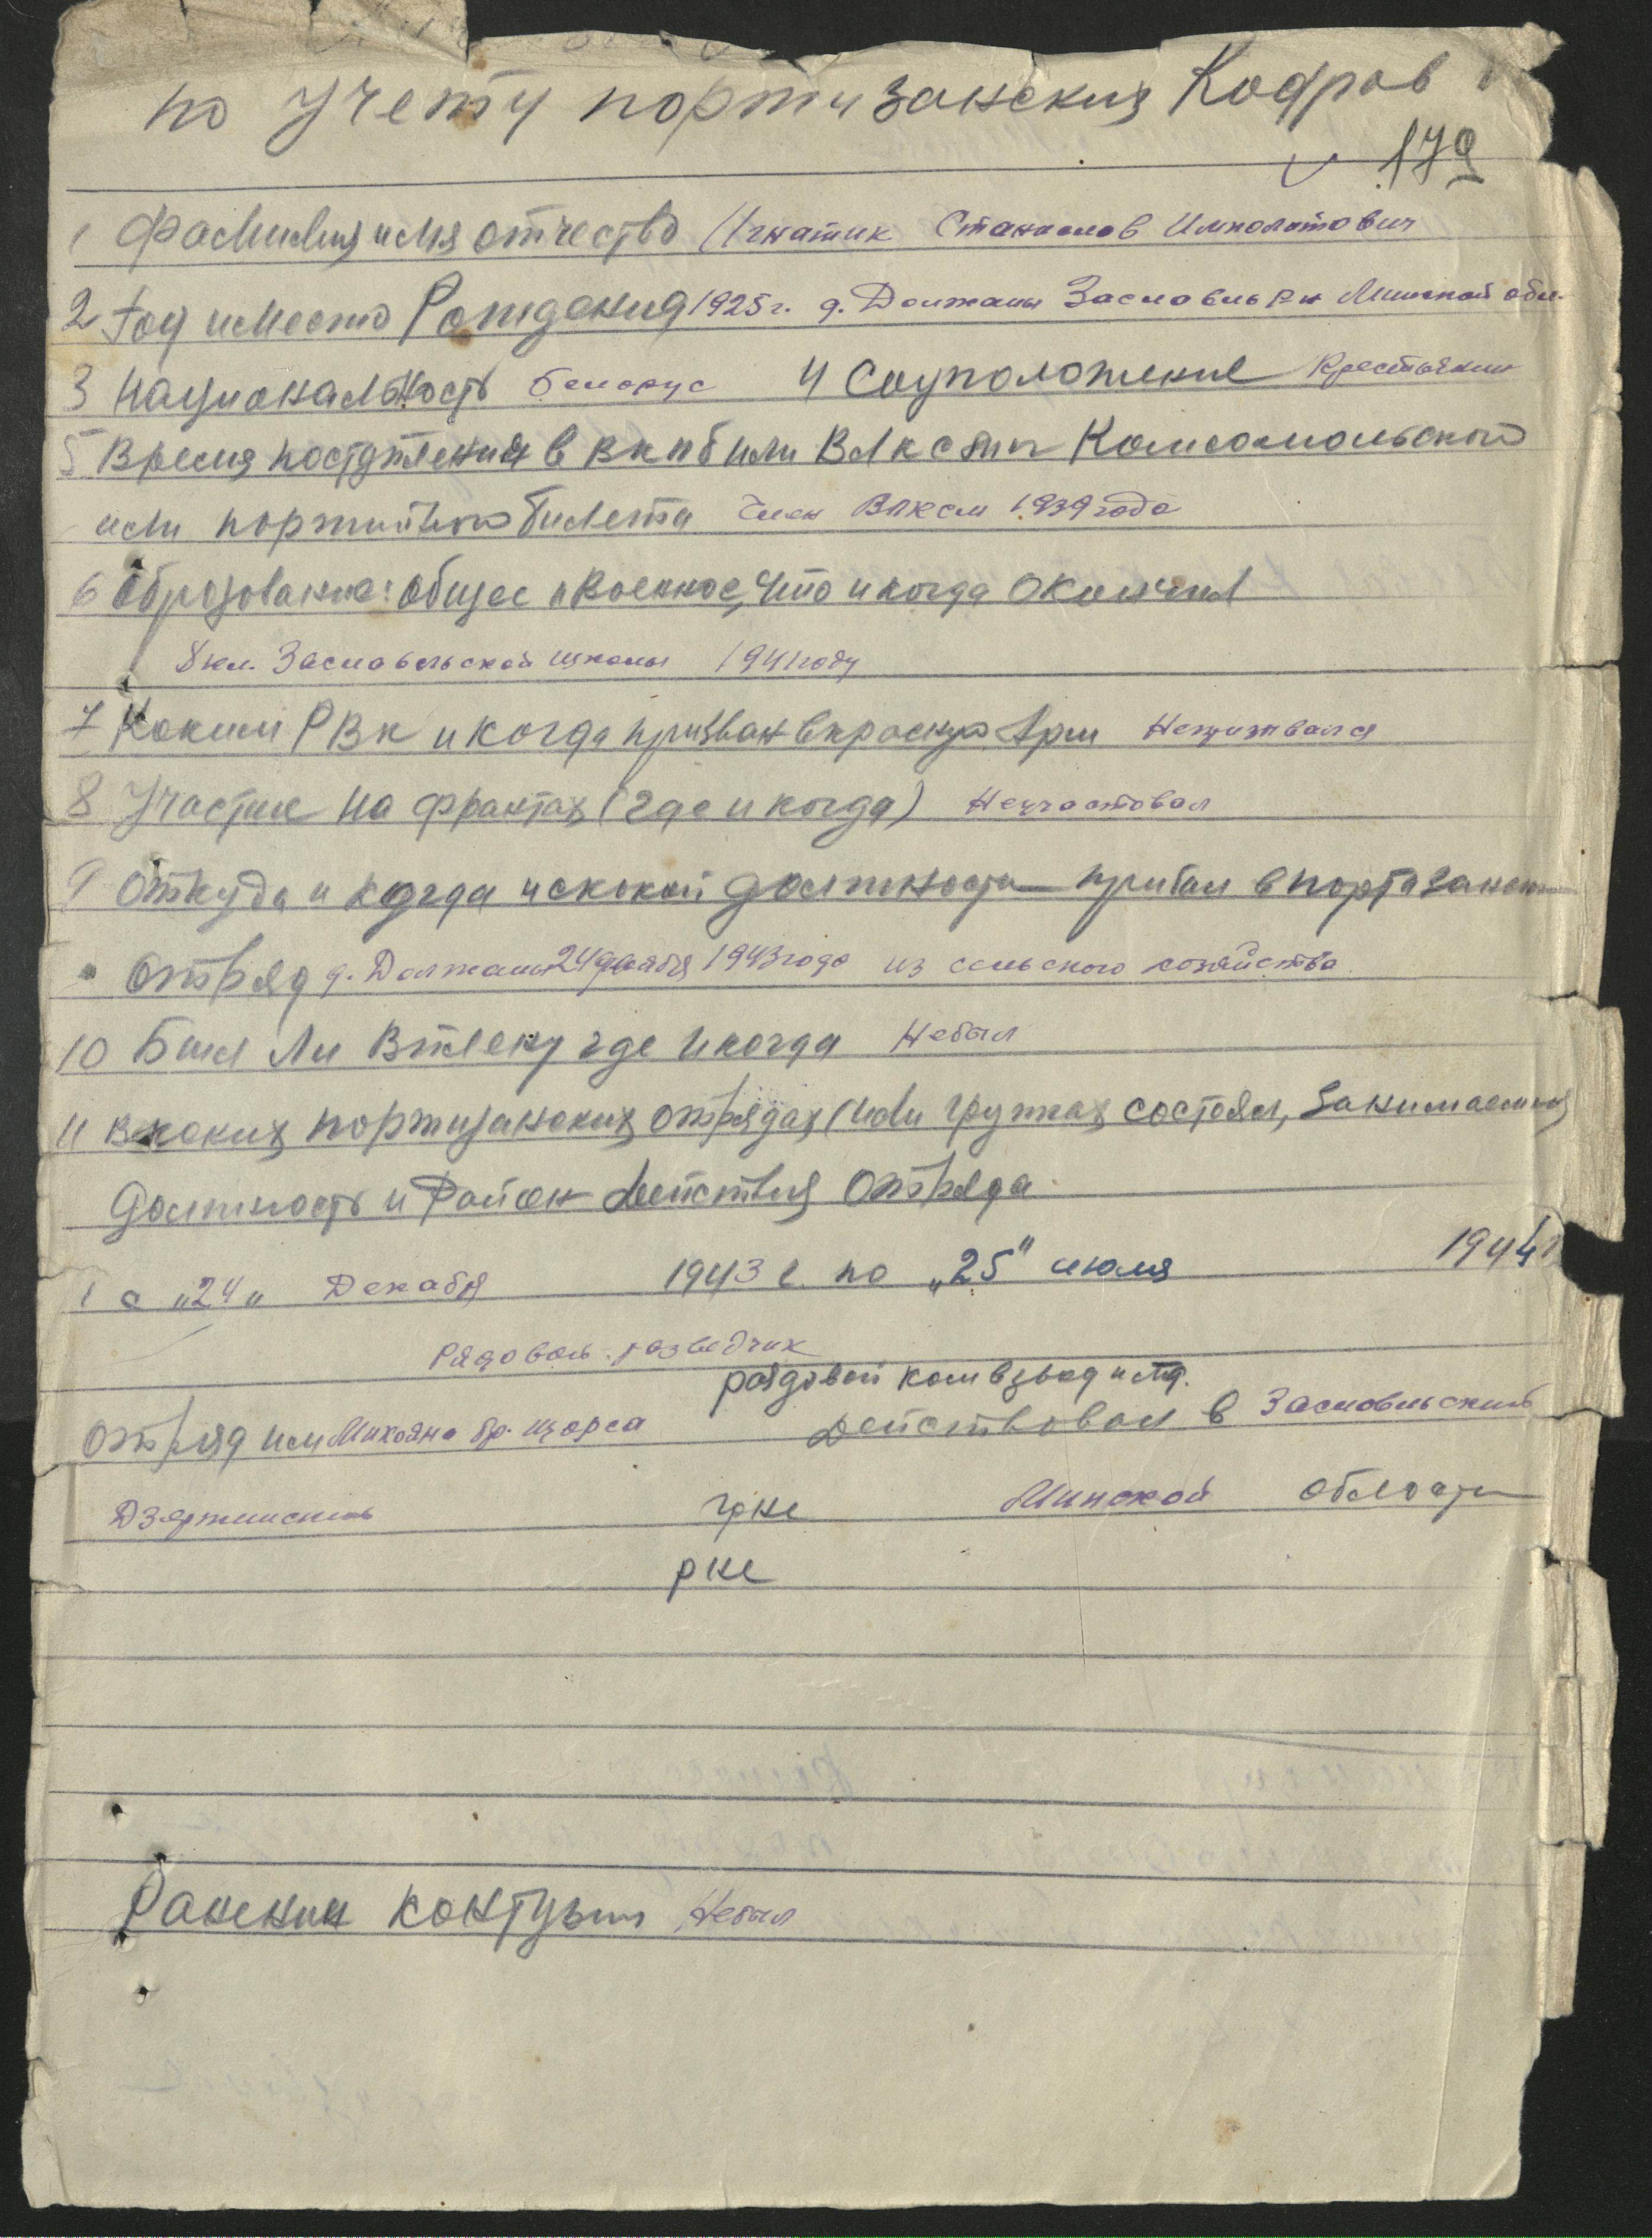 по учету портизанския Кодров
179
1 Фамилия имя отчество Игнатик Станислов Имполитович
2 Год иместо Рождения 1925 г. д. Должаны Заславль р н Минской обл.
3 Национальность белорус 4 Соуположение Крестьянин
5 Время поступления в вкпб или Влксм Комсомольского
или портийного билета Член Влксм 1939 года
6 Образование: общее и военное, что и когда окончил
8 кл. Заславельской школы 1941 году
7 Каким РВК и когда призван в красную Арм Непризивался
8 Участие на фронтах (где и когда) Неучаствовал
9 Откуда и когда и скокой должности прибыл в портизанск
отряд д. Должаны 24 декабря 1943 года из сельского хозяйства
10 Был ли Вплену где и когда Небыл
11 В каких портизанских отрядах (или группах состоял, занимаемая
должность и Район действия отряда.
1 с "24" Декабря 1943 г. по "25" июля 1944 г
Рядовой - разведчик
рядовой комвзвод и тд.
отряд им Микояна бр. Щорса действовал в Заславльским
Дзержинским рне Минской области
рне
Ранении контузии Небыл